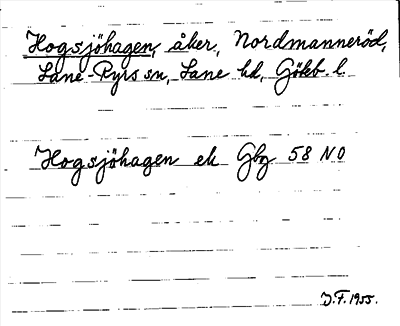 Hogsjöhagen, åker, Nordmanneröd,
Lane-Ryrs sn, Lane hd, Götkb. l.
Hogsjöhagen ek Gbg 58 NO
J.F. 1955.